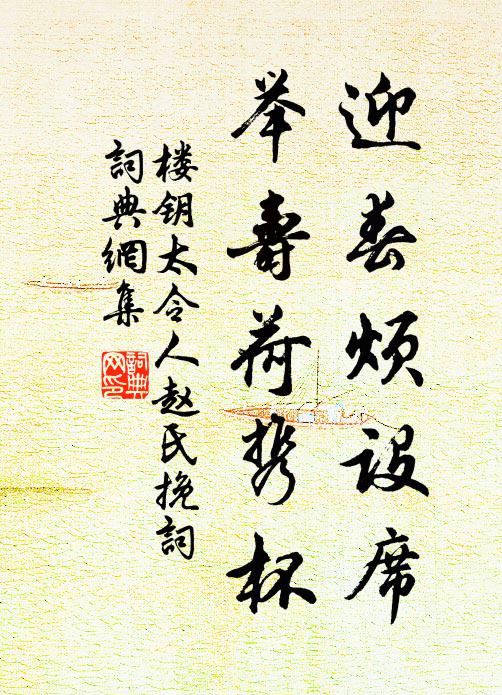 迎春烦设席
举寿荷携杯
楼钥太令人赵氏挽詞
詞典網集
詞典网印